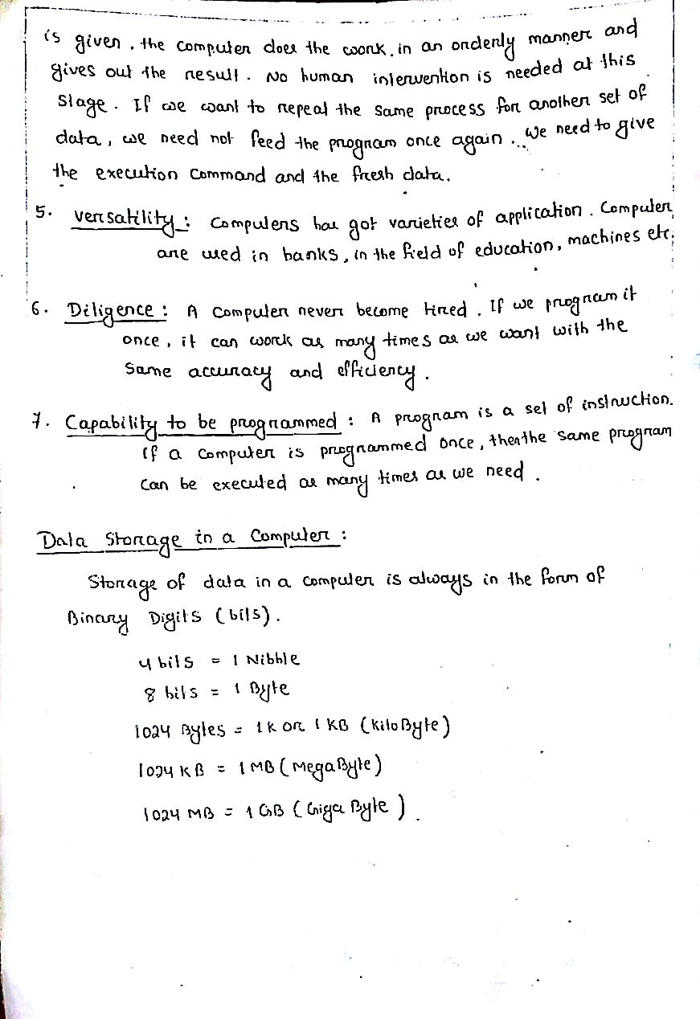 is given. the computer does the work. in an orderly manner and
gives out the result. No human intervention is needed at this
stage. If we want to repeat the same process for another set of
data, we need not feed the program once again... we need to give
the execution command and the fresh data.
5. versatility: Computers has got varieties of application. Computer
are used in banks, in the field of education, machines etc.
6. Diligence: A computer never become tired. If we program it
once, it can work as many times as we want with the
same accuracy and efficiency.
7. Capability to be programmed: A program is a set of instruction.
If a computer is programmed once, then the same program
can be executed as many times as we need.
Data Storage in a Computer:
Storage of data in a computer is always in the form of
Binary Digits (bits).
4 bits = 1 Nibble
8 bits = 1 Byte
1024 Bytes = 1K or 1 KB (KiloByte)
1024 KB = 1 MB (MegaByte)
1024 MB = 1 GB (Giga Byte).